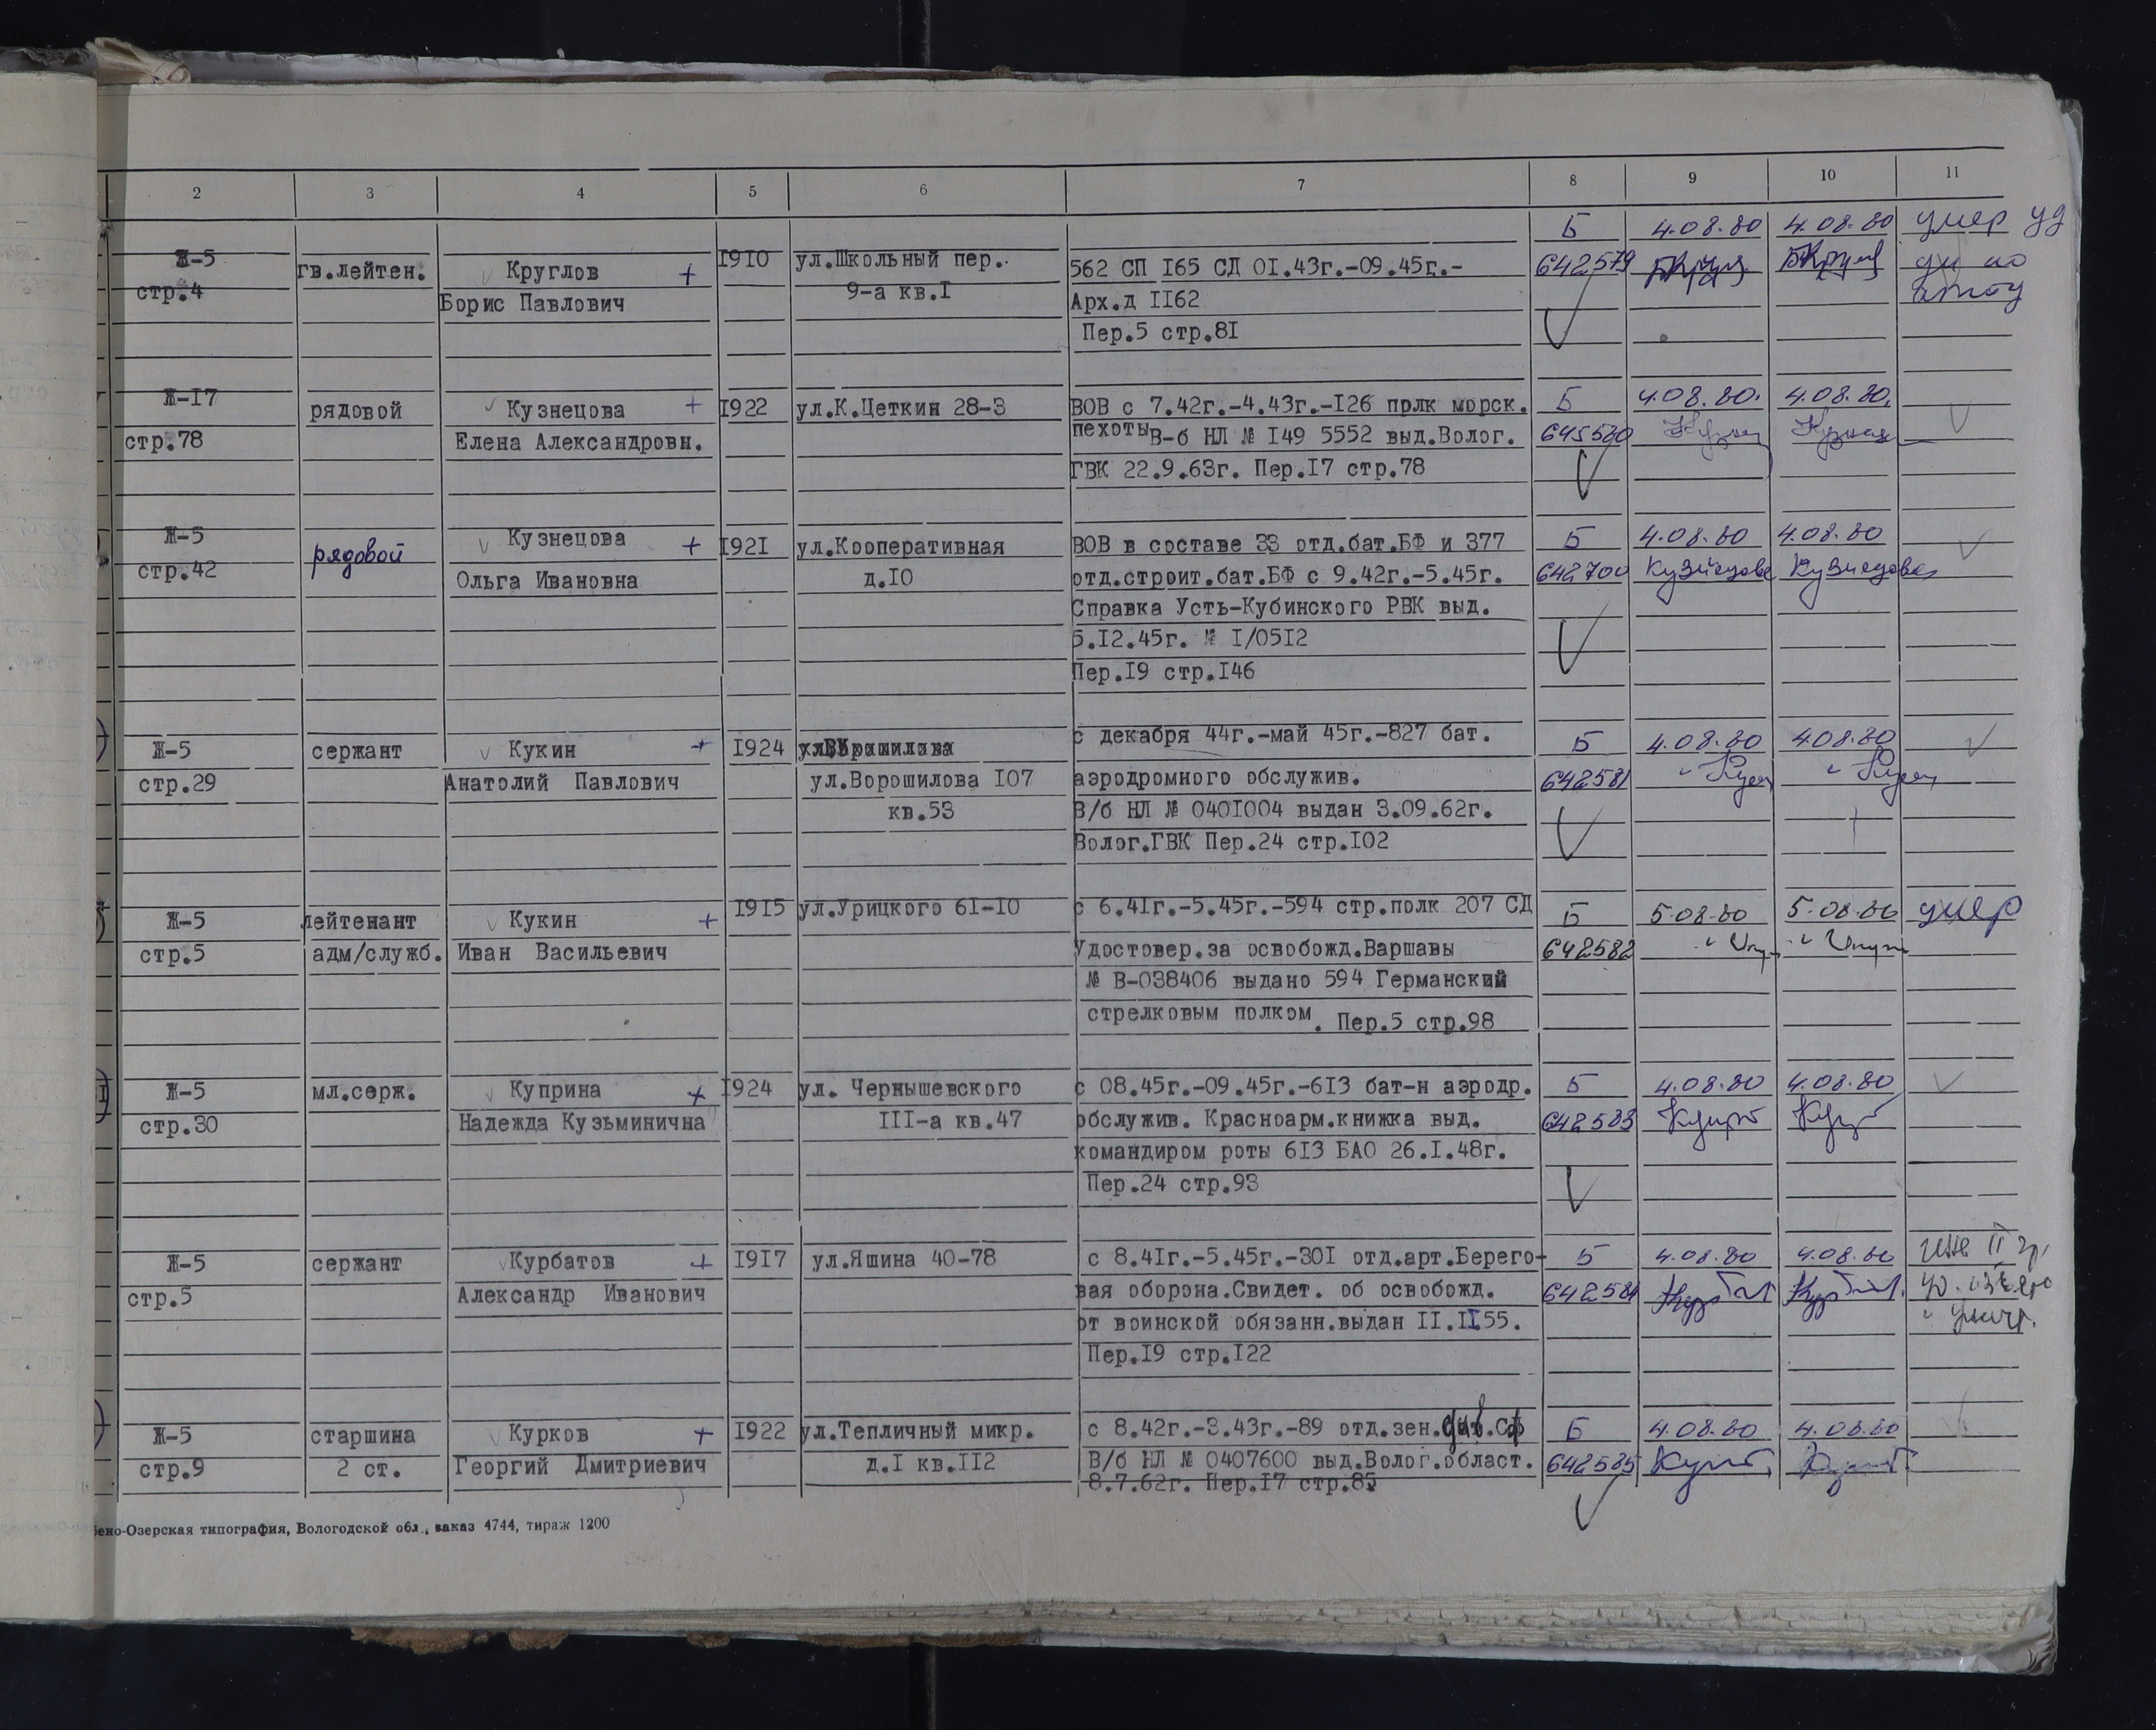 2 3 4 5 6 7 8 9 10 11
Б 4.08.80 4.08.80 умер уд
Ж-5 гв.лейтен. Круглов + 1910 ул.Школьный пер. 562 СП 165 СД 01.43г.-09.45г.- 642579
стр.4 Борис Павлович 9-а кв.I Арх.д II62
Пер.5 стр.8I
Ж-17 рядовой Кузнецова + 1922 ул.К.Цеткин 28-3 ВОВ с 7.42г.-4.43г.-126 полк морск. Б 4.08.80. 4.08.80.
стр.78 Елена Александровн. пехоты В-б НЛ № 149 5552 выд.Волог. 645580
ГВК 22.9.63г. Пер.17 стр.78
Ж-5 рядовой Кузнецова + 1921 ул.Кооперативная ВОВ в составе 33 отд.бат.БФ и 377 Б 4.08.80 4.08.80
стр.42 Ольга Ивановна д.10 отд.строит.бат.БФ с 9.42г.-5.45г. 642700 Кузнецова Кузнецова
Справка Усть-Кубинского РВК выд.
5.12.45г. № I/0512
Пер.19 стр.146
Ж-5 сержант Кукин + 1924 с декабря 44г.-май 45г.-827 бат. Б 4.08.80 4.08.80
стр.29 Анатолий Павлович ул.Ворошилова 107 аэродромного обслужив. 642581
кв.53 В/б НЛ № 0401004 выдан 3.09.62г.
Волог.ГВК Пер.24 стр.102
Ж-5 лейтенант Кукин + 1915 ул.Урицкого 61-10 с 6.41г.-5.45г.-594 стр.полк 207 СД Б 5.08.80 5.08.80 умер
стр.5 адм/служб. Иван Васильевич Удостовер.за освобожд.Варшавы 642582
№ В-038406 выдано 594 Германский
стрелковым полком. Пер.5 стр.98
Ж-5 мл.серж. Куприна + 1924 ул. Чернышевского с 08.45г.-09.45г.-613 бат-н аэродр. Б 4.08.80 4.08.80
стр.30 Надежда Кузьминична III-а кв.47 обслужив. Красноарм.книжка выд. 642583
командиром роты 613 БАО 26.I.48г.
Пер.24 стр.93
Ж-5 сержант Курбатов + 1917 ул.Яшина 40-78 с 8.41г.-5.45г.-301 отд.арт.Берего- Б 4.08.80 4.08.80
стр.5 Александр Иванович вая оборона.Свидет. об освобожд. 642584
от воинской обязанн.выдан II.II55.
Пер.19 стр.122
Ж-5 старшина Курков + 1922 ул.Тепличный микр. с 8.42г.-3.43г.-89 отд.зен. Б 4.08.80 4.08.80
стр.9 2 ст. Георгий Дмитриевич д.I кв.II2 В/б НЛ № 0407600 выд.Волог.област. 642585
8.7.62г. Пер.17 стр.85
ено-Озерская типография, Вологодской обл., заказ 4744, тираж 1200